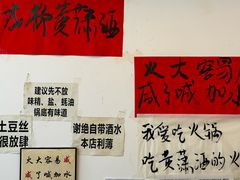 黄潇油
火大容易
咸了喊加水
建议先不放
味精、盐、蚝油
锅底有味道
土豆丝
很放肆
谢绝自带酒水
本店利薄
我爱吃火锅
吃黄潇油的火
火大容易咸
咸了喊加水